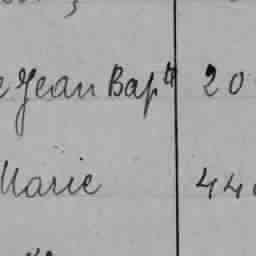 Jean Bapte 20
Marie 44